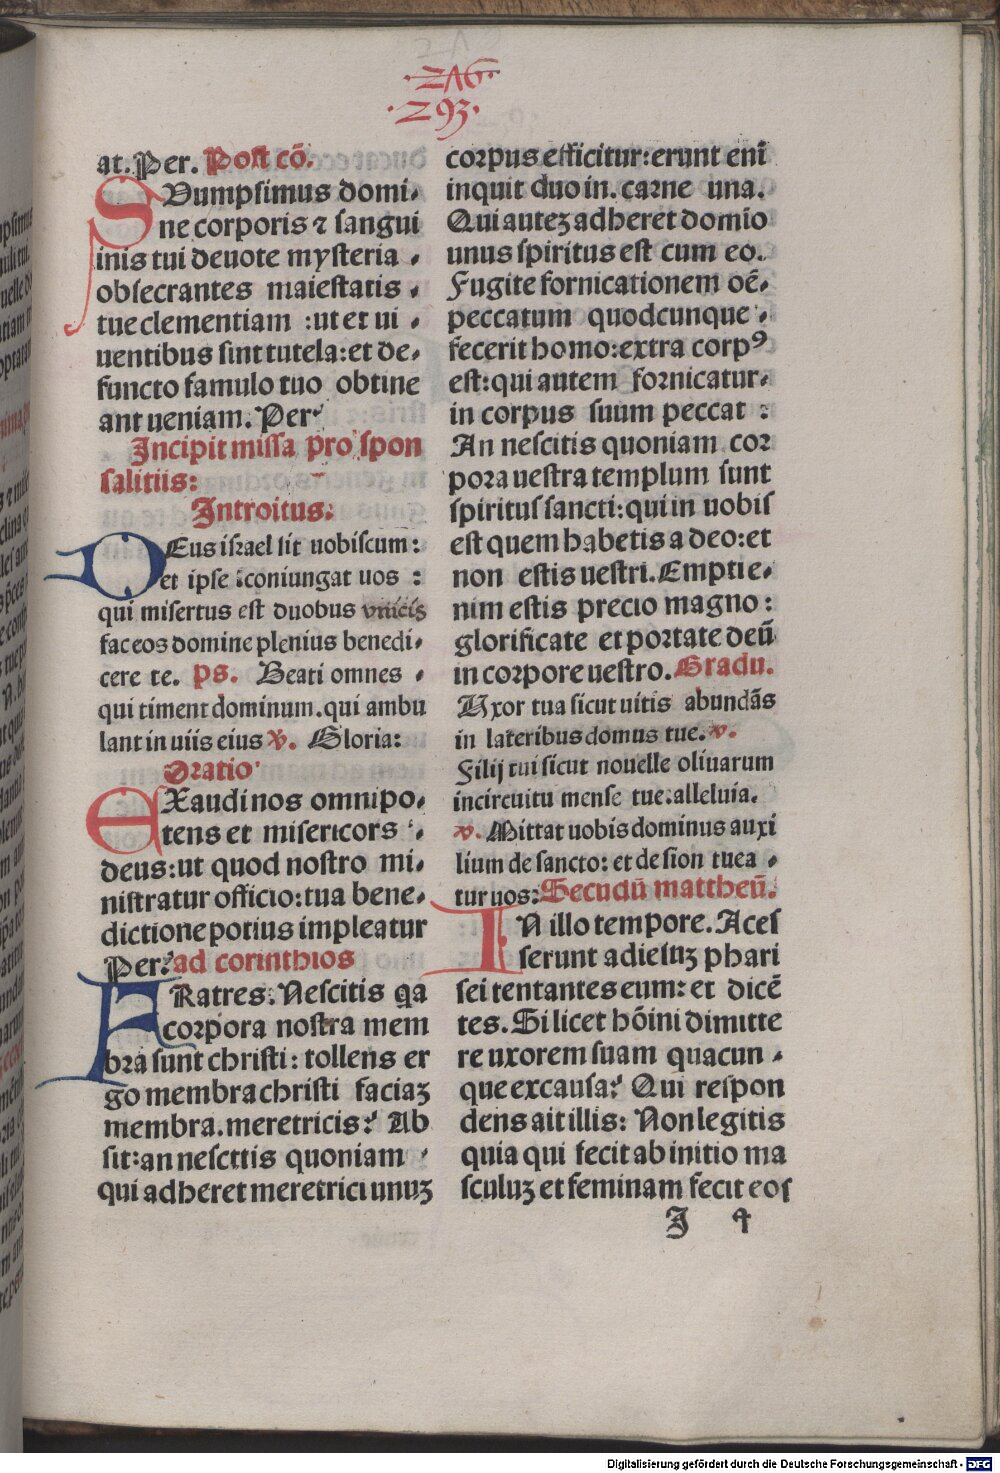 ·ZΛ6·
·293·
at. Per. Post cō.
SUumpsimus domi-
ne corporis ⁊ sangui
inis tui deuote mysteria ,
obsecrantes maiestatis ,
tue clementiam :ut et ui ,
uentibus sint tutela:et de,
functo famulo tuo obtine
ant ueniam. Per
Incipit missa pro spon
salitiis:
Introitus:
DEus israel sit uobiscum:
et ipse :coniungat uos :
qui misertus est duobus vnicis
fac eos domine plenius benedi,
cere te. ps. Beati omnes ,
qui timent dominum.qui ambu
lant in uiis eius v. Gloria:
Oratio
EXaudi nos omnipo,
tens et misericors ,
deus:ut quod nostro mi,
nistratur officio:tua bene,
dictione potius impleatur
Per: ad corinthios
FRatres: Nescitis qa
corpora nostra mem
bra sunt christi: tollens er
go membra christi faciaꝫ
membra.meretricis: Ab
sit:an nescttis quoniam ,
qui adheret meretrici unuꝫ
corpus efficitur:erunt eni̅
inquit duo in. carne una.
Qui auteꝫ adheret domi̅o
unus spiritus est cum eo.
Fugite fornicationem oē,
peccatum quodcunque ,
fecerit homo:extra corpꝰ
est:qui autem fornicatur,
in corpus suum peccat :
An nescitis quoniam cor
pora uestra templum sunt
spiritus sancti:qui in uobis
est quem habetis a deo:et
non estis uestri.Empti e,
nim estis precio magno :
glorificate et portate deū
in corpore uestro. Gradu.
Uxor tua sicut uitis abundās
in lateribus domus tue. v.
Filij tui sicut nouelle oliuarum
incircuitu mense tue.alleluia.
v. Mittat uobis dominus auxi
lium de sancto: et de sion tuea ,
tur uos: Secūdū mattheū.
IN illo tempore. Aces
serunt ad iesuꝫ phari
sei tentantes eum: et dicē
tes. Si licet hōini dimitte
re uxorem suam quacun ,
que ex causa: Qui respon
dens ait illis: Non legitis
quia qui fecit ab initio ma
sculuꝫ et feminam fecit eos
J 4
Digitalisierung gefördert durch die Deutsche Forschungsgemeinschaft - DFG